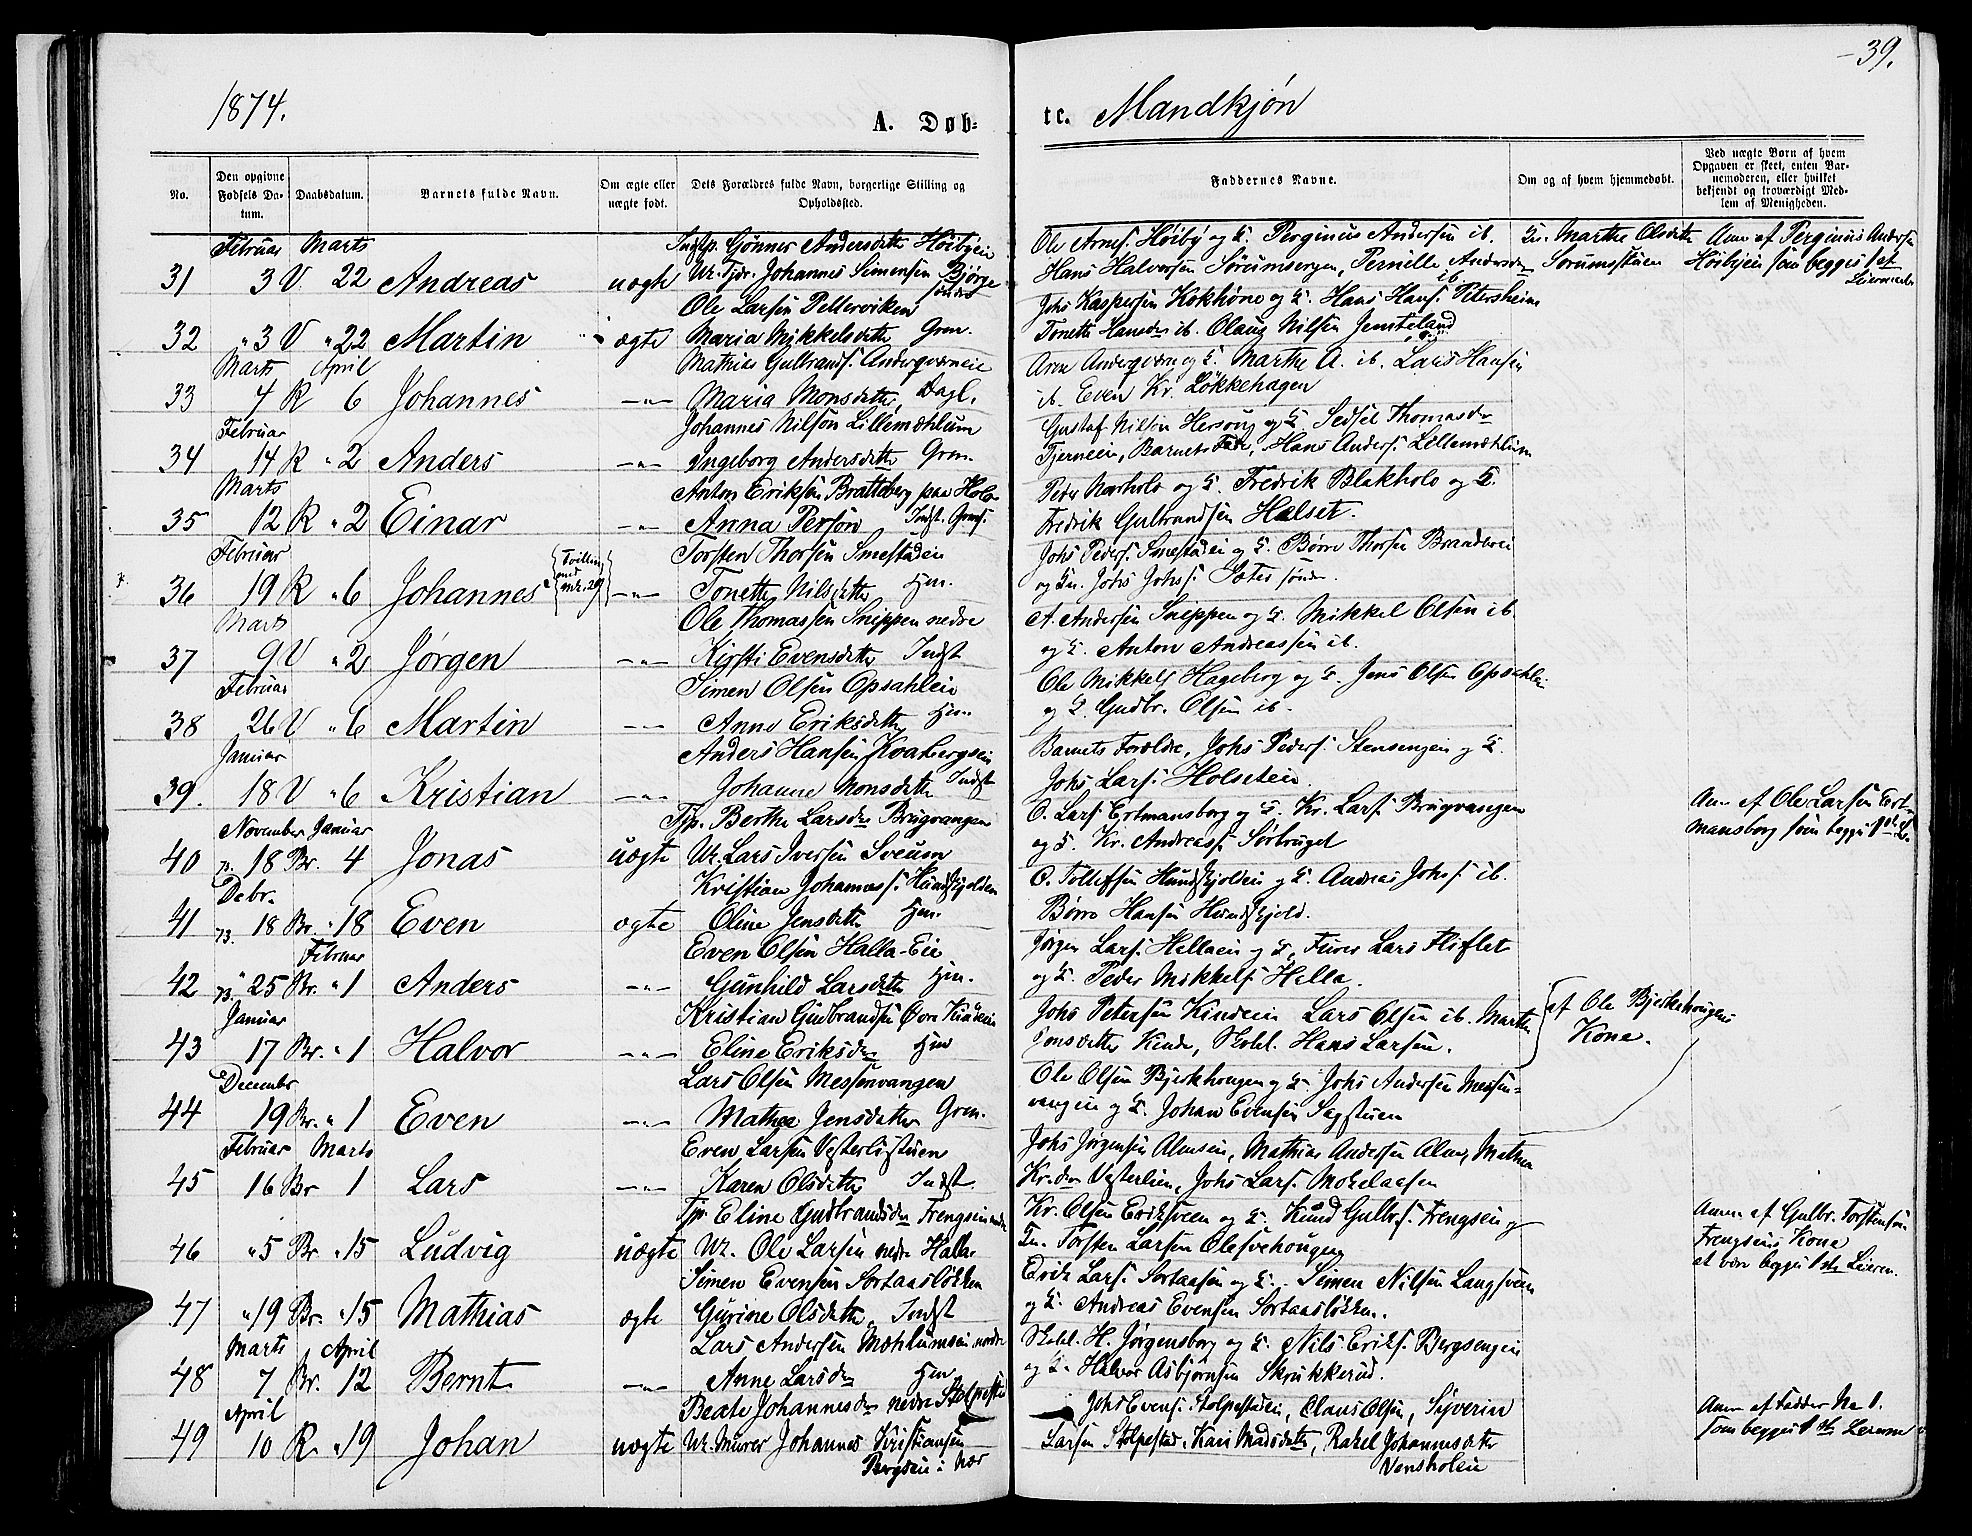 39.
1874.
A. Døb-
te. Mandkjön
No.
Den opgivne Fødsels Datum.
Daabsdatum.
Barnets fulde Navn.
Om ægte eller uægte født.
Dets Forældres fulde Navn, borgerlige Stilling og Opholdssted.
Faddernes Navne.
Om og af hvem hjemmedøbt.
Ved uægte Børn af hvem Opgaven er skeet, enten Barnemoderen, eller hvilket bekjendt og troværdigt Medlem af Menigheden.
Februar Marts
31 3 V. 22 Andreas uægte
Gønner Andersdatter Höibyeie
Johannes Simensen Bjørge søndre
Ole Arnes. Höiby og Perginus Andersen ib.
Hans Halvorsen Sörumsengen, Pernille Andersdr ib
Martha Olsdatter Sorumstuen
Anm. af Perginus Andersen Höibyeie som begges 1st Leiermaal
32 " 3 V " 22 Martin ægte
Ole Larsen Pellerviken
Maria Mikkelsdatter Grm.
Johs Kaspersen Kokhöne og Hans Hans. Petersheim
Tonette Hansdr ib. Olaus Nilsen Jensteland
Marts April
33 4 R 6 Johannes -"-
Mathias Gulbrands. Anderqværneie
Maria Monsdatter, Dagl.
Aren Anderqværn og Marthe A. ib. Lars Hansen
ib. Even Kr. Løkkehagen
Februar
34 14 R " 2 Anders -"-
Johannes Nilson Lillemæhlum
Ingeborg Andersdatter Grm.
Gustaf Nilson Hersoug og Sedsel Thomasdr
Tjerneie, Barnets Fader, Hans Anders. Lillemæhlum
Marts
35 12 R " 2 Einar -"-
Anton Eriksen Bratteberg paa Hols
Anna Persön Indst.
Peder Narholo og Fredrik Blakholo og
Fredrik Gulbrandsen Halset.
Februar
36 19 R " 6 Johannes {Tvilling med nr. 29} -"-
Torsten Thorsen Smestadeie
Tonette Nilsdatter Hm.
Johs Peders. Smestadeie og Børre Thorsen Branderei
og Johs Johss. Sæter söndr.
Marts
37 9 V " 2 Jørgen -"-
Ole Thomassen Sneppen nedre
Kirsti Evensdatter Indst
A. Andersen Sneppen og Mikkel Olsen ib.
og Anton Andreassen ib.
Februar
38 26 V " 6 Martin -"-
Simen Olsen Opsahleie
Anne Eriksdatter Hm.
Ole Mikkels. Hageberg og Jens Olsen Opsahleie
og Gudbr. Olsen ib.
Januar
39. 18 V " 6 Kristian -"-
Anders Hansen Kvabergseie
Johanne Monsdatter Indst
Barnets Forældre, Johs Peders. Stensengen og
Johs Lars. Holseteie
November Januar
40 73. 18 Br. 4 Jonas uægte
Tjp. Berthe Larsdr Brugvangen
Lars Iversen Sveum
O. Lars. Ertmansborg og Kr. Lars. Brugvangen
og Kr. Andreass. Sörbruget
Anm af Ole Larsen Ertmansborg som begges 1st
Debr.
41 73. 18 Br. " 18 Even ægte
Kristian Johanness. Hundskjolden
Oline Jensdatter Hm.
O. Tollefsen Hundskjolden og Andreas Johs. ib.
Børre Hansen Hundskjold.
Februar
42 " 73. 25 Br. " 1 Anders -"-
Even Olsen Halla-Eie
Gunhild Larsdatter Hm.
Jørgen Lars. Hallaeie og Lars Fliflet
og Peder Mikkels. Halla.
Januar
43 17 Br. " 1 Halvor -"-
Kristian Gudbrandsen Øvre Kindeie
Eline Eriksdr Hm
Johs Petersen Kindeie Lars Olsen ib. Marthe
Jonsdatter Kinde, Skohl. Hans Larsen.
af Ole Bjerkehougens Kone.
Decembr
44 19 Br. " 1 Even -"-
Lars Olsen Messenvangen
Mathea Jensdatter Grm.
Ole Olsen Bjerkhougen og Johs Andersen Messen-
vangen og Johan Evensen Sagstuen
Februar Marts
45 16 Br 1 Lars -"-
Even Larsen Vesterlistuen
Karen Olsdatter Indst.
Johs Jörgensen Almseie, Mathias Andersen Alm, Mathea
Kr.dr Vesterlien, Johs Lars. Mokelaasen
46 " 5 Br " 15 Ludvig uægte
Tjp. Eline Gudbrandsdr Frengseie
Ole Larsen nedre Halla
Kr. Olsen Eriksveen og Knud Gulbr.s. Frengseie og
Torsten Larsen Olesvehougen
Anm. af Gulbr. Torstensen Frengseies Kone at være begges 1ste Leierm.
47 " 19 Br. " 15 Mathias ægte
Simen Evensen Sortaaslökken
Gurine Olsdatter Indst
Erik Lars. Sortaasen og Simen Nilsen Langsveen
og Andreas Evensen Sortaaslökken.
Marts April
48 7 Br. 12 Bernt -"-
Lars Andersen Mæhlumseie nordre
Anne Larsdr Hm
Skohl. H. Jørgensborg og Nils Eriks. Bergsengen
og Halvor Asbjørnsen Skrukkerud.
April
49 10 R " 19 Johan uægte
Beate Johannesdr nedre Stolpestad
Murer Johannes Kristiansen
Bergseie i Næs
Johs Evens. Stolpestadeie, Claus Olsen, Syverin
Larsen Stolpestad. Kari Madsdatter, Rakel Johannesdatter
Vensholeie
Anm af Fadder No 1. som begges 1ste Leierm